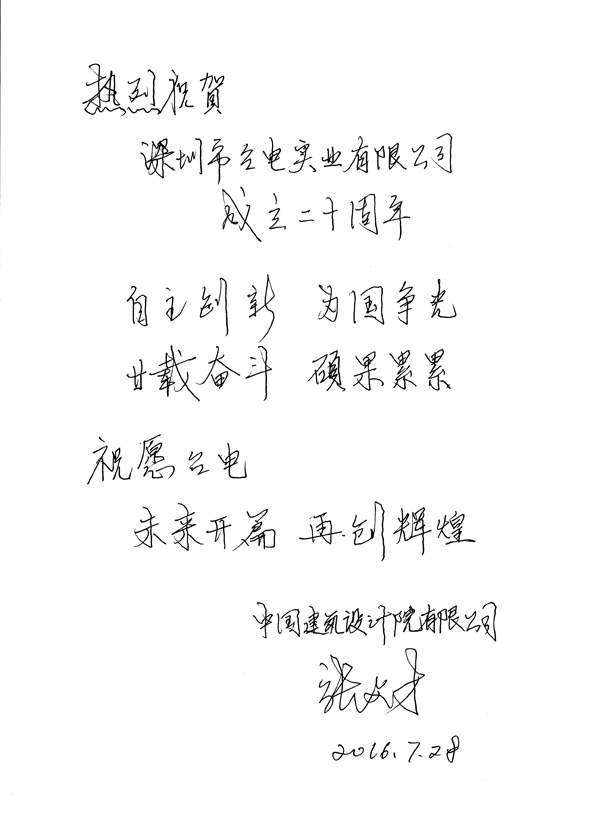 热烈祝賀
深圳市台电实业有限公司
成立二十周年
自主创新 为国争光
廿载奋斗 硕果累累
祝愿台电
未来开篇 再创辉煌
中国建筑设计院有限公司
张文才
2016.7.28